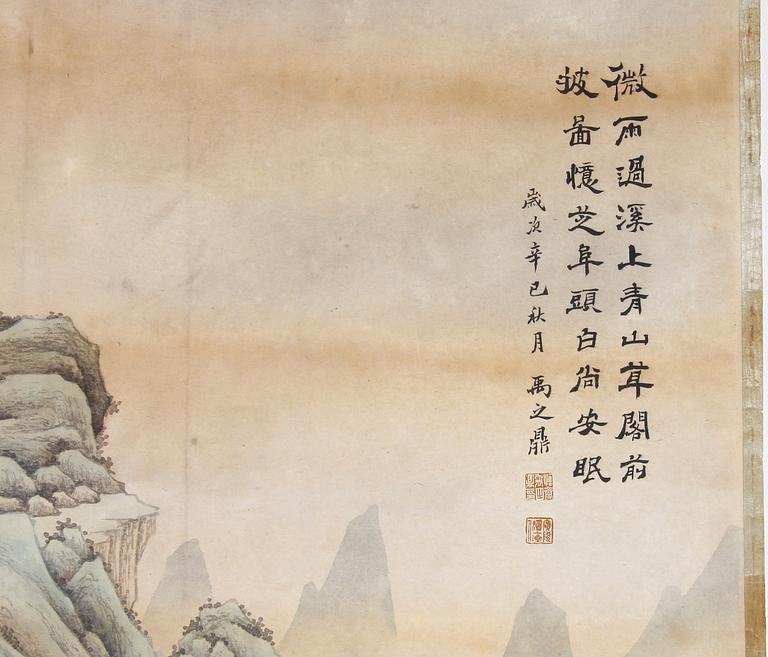 微雨過溪上青山茸閣前
披啚憶芝阜頭白尚安眠
歲次辛巳秋月 禹之鼎